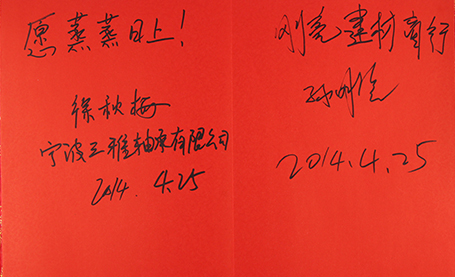 愿蒸蒸日上！
徐秋梅
宁波五雅轴承有限公司
2014. 4.25
刚亮建材商行
孙明
2014.4.25